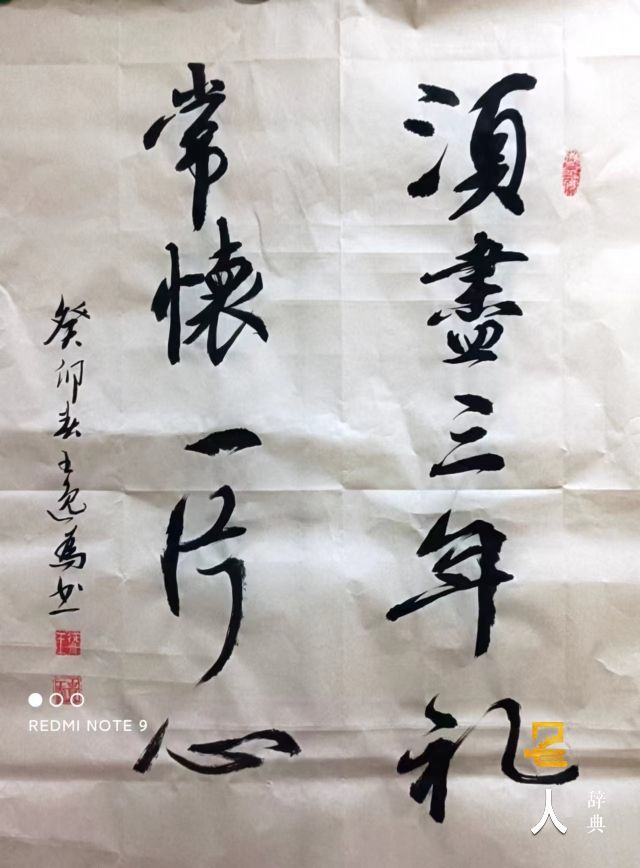 須盡三年礼
常懷一片心
癸卯春王逸馬书
REDMI NOTE 9
名人
辞典